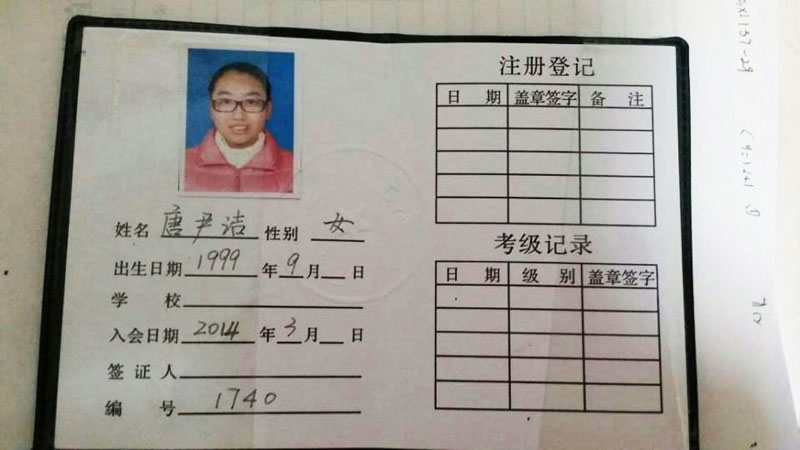 姓名 唐尹洁 性别 女
出生日期 1999 年 9 月 日
学 校
入会日期 2014 年 3 月 日
签 证 人
编 号 1740
注册登记
日 期 盖章签字 备 注
考级记录
日 期 级 别 盖章签字